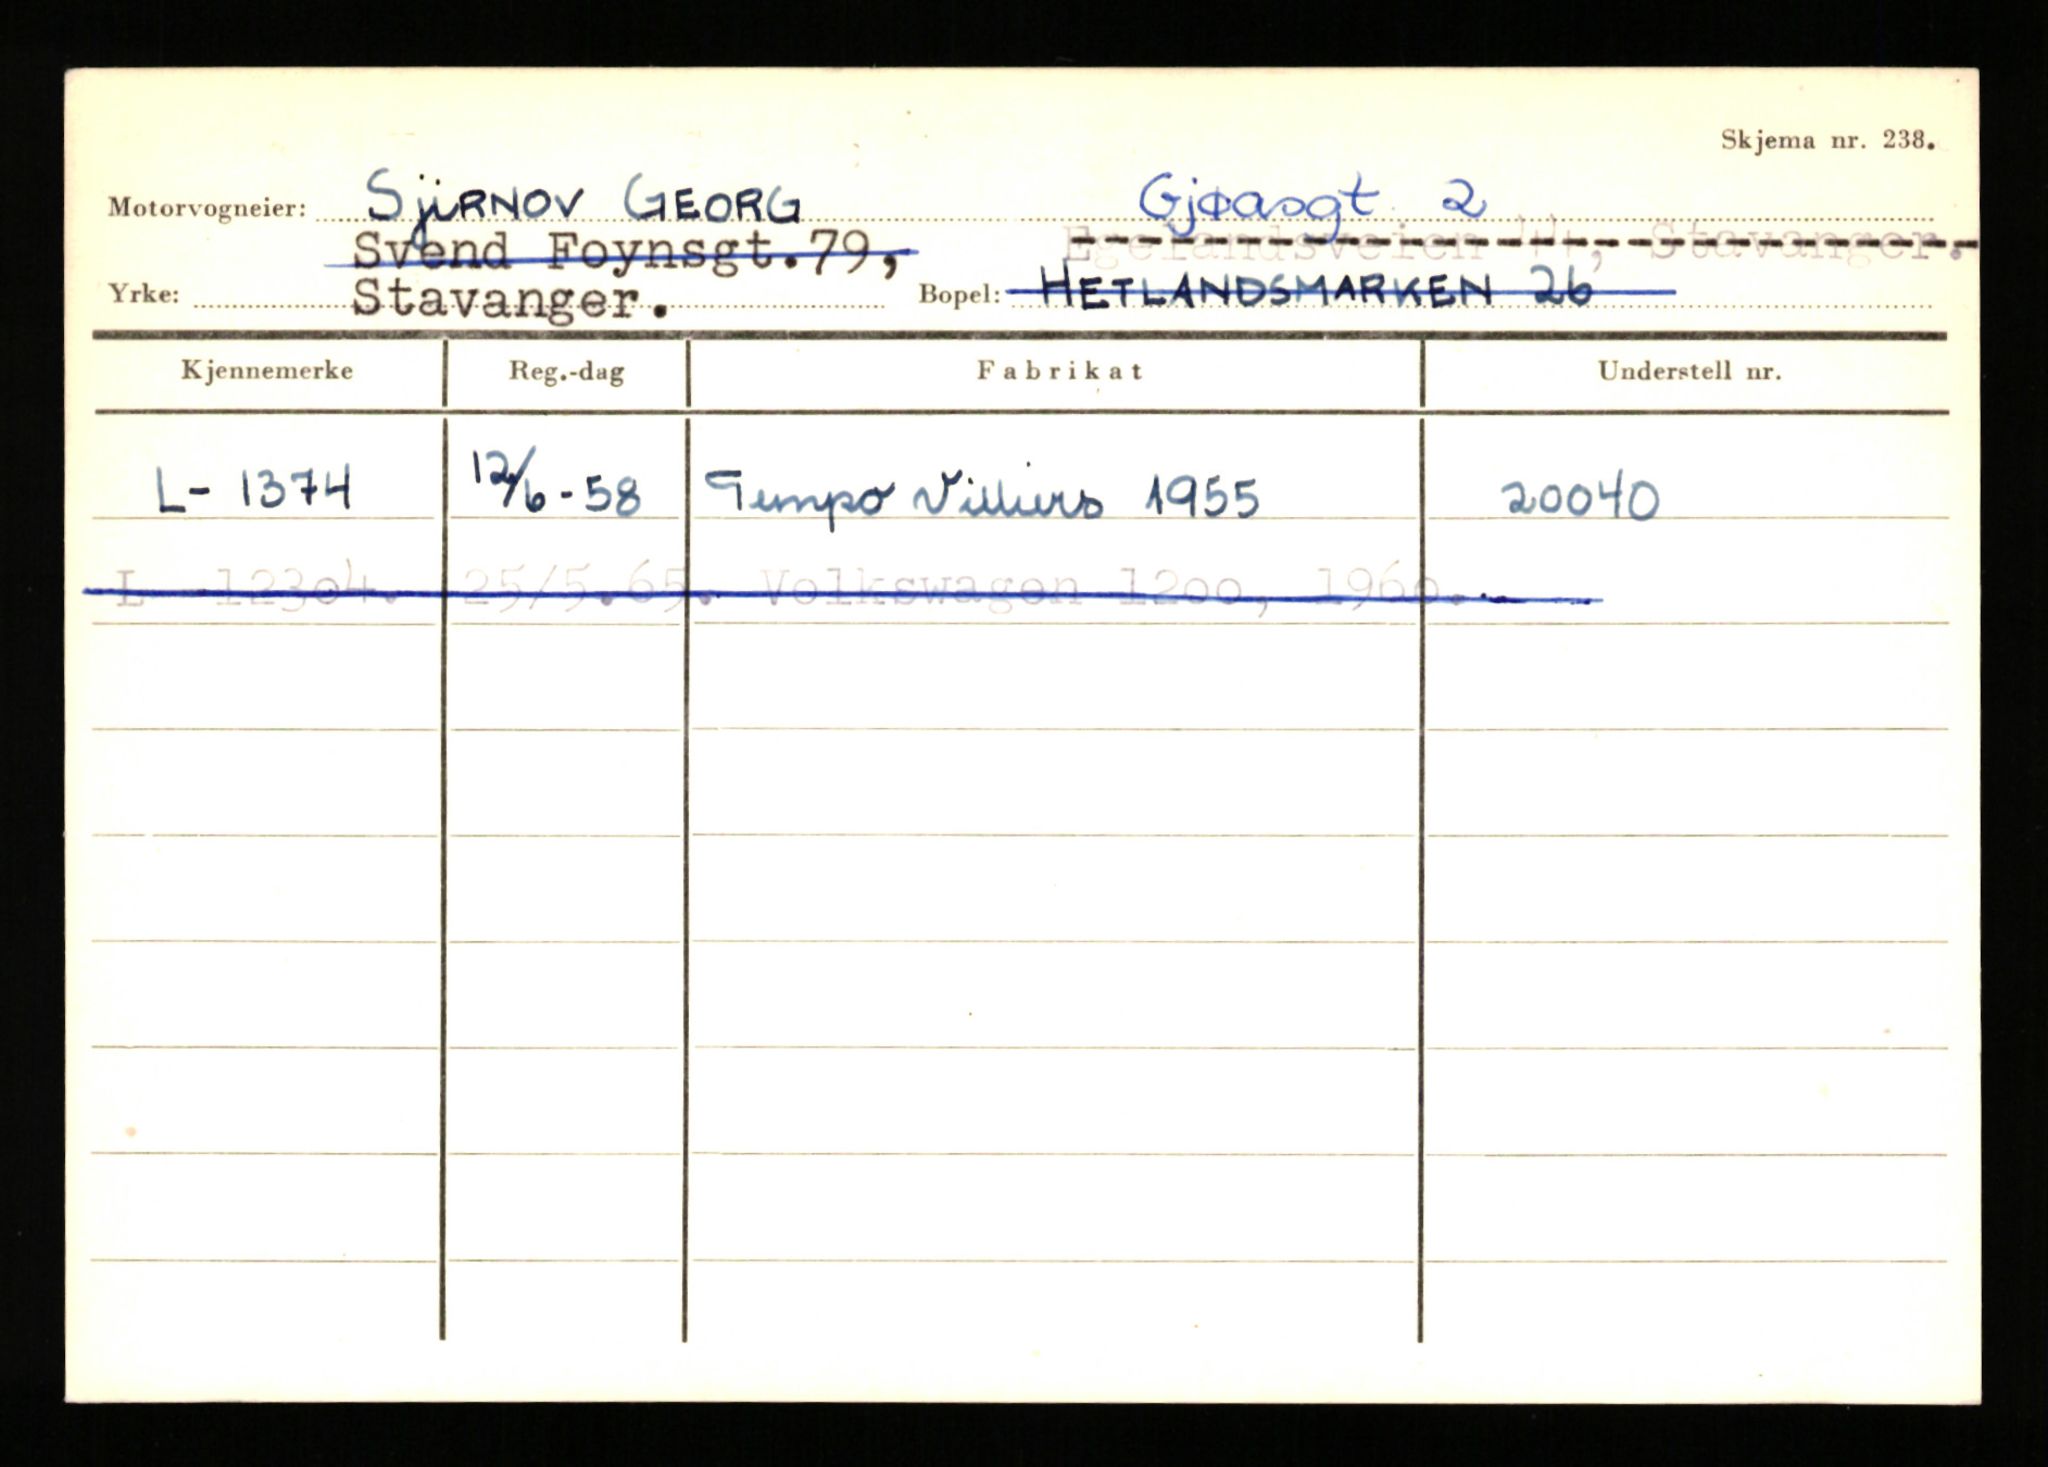 Skjema nr. 238.
Motorvogneier: Sjirnov Georg Gjøasgt 2
Svend Foynsgt.79, Egelandsveien, Stavanger.
Yrke: Stavanger. Bopel: HETLANDSMARKEN 26
Kjennemerke Reg.-dag Fabrikat Understell nr.
L- 1374 12/6-58 Tempo Villiers 1955 20040
L 12304. 25/5.65. Volkswagen 1200, 1960.